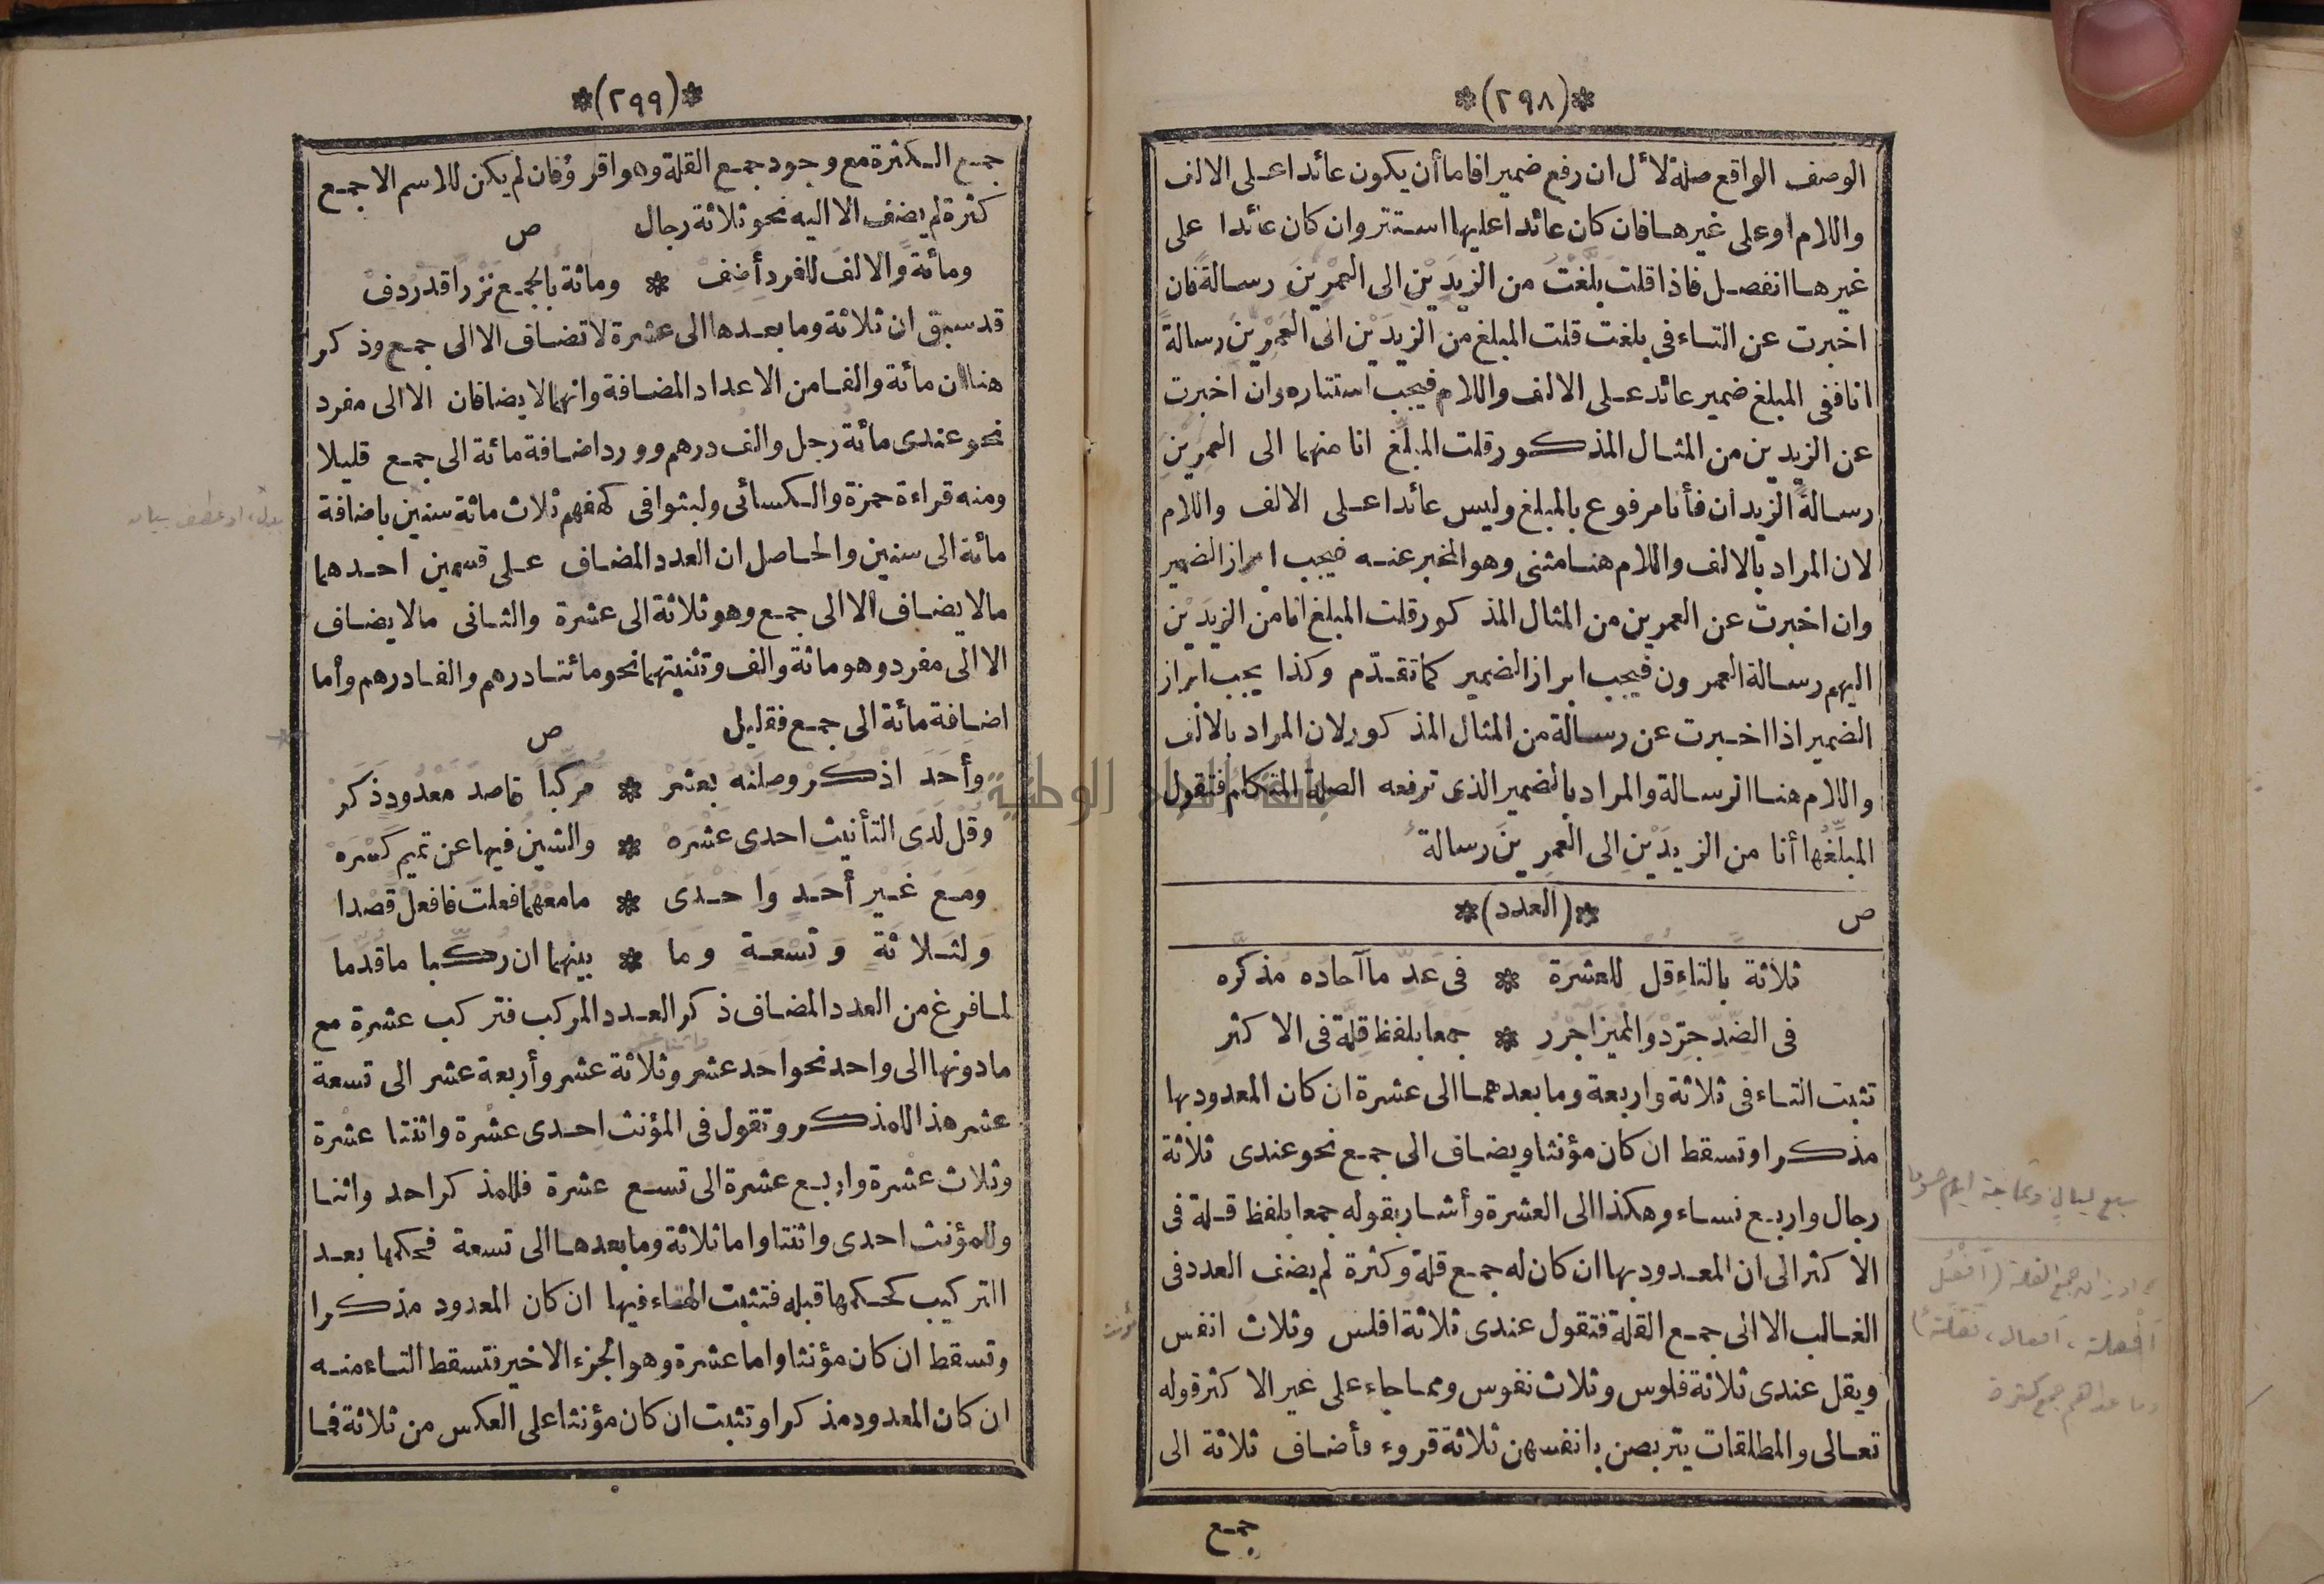 *(٢٩٨)*
الوصف الواقع صلة لأل ان رفع ضميرا فاما أن يكون عائدا على الالف
واللام او على غيرها فان كان عائدا عليها استتر وان كان عائدا على
غيرها انفصل فاذا قلت بلّغتُ من الزيدَيْنِ الى العمْرِينَ رسالةً فان
اخبرت عن التاء فى بلغت قلت المبلغ من الزيدَيْن الى العَمْرِينَ رسالةً
انا ففى المبلغ ضمير عائد على الالف واللام فيجب استتاره وان اخبرت
عن الزيدين من المثال المذكور قلت المبلّغ انا منهما الى العمْرِيْنَ
رسالةً الزيدان فأنا مرفوع بالمبلغ وليس عائدا على الالف واللام
لان المراد بالالف واللام هنا مثنى وهو المخبر عنه فيجب ابراز الضمير
وان اخبرت عن العمرين من المثال المذكور قلت المبلغ انا من الزيدَيْن
اليهم رسالة العمرون فيجب ابراز الضمير كما تقدّم وكذا يجب ابراز
الضمير اذا اخبرت عن رسالة من المثال المذكور لان المراد بالالف
واللام هنا الرسالة والمراد بالضمير الذى ترفعه الصلة المتكلم فتقول
المبلّغُها أنا من الزيدَيْنِ الى العمرِينَ رسالةٌ
ص *(العدد)*
ثلاثةً بالتاءِ قل للعشرَة * فى عَدِّ ما آحادُه مُذكَّره
فى الضّدِّ جرّدْ والمميزَ اجْرُرِ * جمْعًا بلفظِ قِلَّةٍ فى الاكثرِ
تثبت التاء فى ثلاثة واربعة وما بعدهما الى عشرة ان كان المعدود بها
مذكرا وتسقط ان كان مؤنثا ويضاف الى جمع نحو عندى ثلاثة
رجال واربع نساء وهكذا الى العشرة وأشار بقوله جمعا بلفظ قلة فى
الاكثر الى ان المعدود بها ان كان له جمع قلة وكثرة لم يضف العدد فى
الغالب الا الى جمع القلة فتقول عندى ثلاثة افلس وثلاث انفس
ويقل عندى ثلاثة فلوس وثلاث نفوس ومما جاء على غير الاكثر قوله
تعالى والمطلقات يتربصن بانفسهن ثلاثة قروء فأضاف ثلاثة الى
جمع
سبع ليال وثمانية ايام حسوما
اوزان جمع القلة (أَفْعُل
أفعلة، أفعال، فعلة)
وما عداهم جمع كثرة
*(٢٩٩)*
جمع الكثرة مع وجود جمع القلة وهو اقرؤ فان لم يكن للاسم الا جمع
كثرة لم يضف الا اليه نحو ثلاثة رجال ص
ومائةً والالفَ للفردِ أَضِفْ * ومائةٌ بالجمعِ نزرًا قدْ رُدِفْ
قد سبق ان ثلاثة وما بعدها الى عشرة لا تضاف الا الى جمع وذكر
هنا ان مائة والفا من الاعداد المضافة وانهما لا يضافان الا الى مفرد
نحو عندى مائة رجل والف درهم وورد اضافة مائة الى جمع قليلا
ومنه قراءة حمزة والكسائى ولبثوا فى كهفهم ثلاث مائة سنين باضافة
مائة الى سنين والحاصل ان العدد المضاف على قسمين احدهما
مالا يضاف الا الى جمع وهو ثلاثة الى عشرة والثانى مالا يضاف
الا الى مفرد وهو مائة والف وتثنيتهما نحو مائتا درهم والفا درهم وأما
اضافة مائة الى جمع فقليل ص
وأحَدَ اذْكُرْ وصِلَنْهُ بعَشَرْ * مركّبًا قاصدَ معْدُودٍ ذكَرْ
وقُلْ لدَى التأنيثِ احدى عشْرَهْ * والشينُ فيها عن تميم كَسْرَهْ
ومَعَ غَيْرِ أحَدٍ وَاِحْدَى * ما معْهُما فعلْتَ فافعلْ قصْدا
وَلثلاثَةٍ وَتسْعَةٍ وَمَا * بينهما ان رُكِّبا ما قُدِّما
لما فرغ من العدد المضاف ذكر العدد المركب فتركب عشرة مع
ما دونها الى واحد نحو احَد عشر وثلاثة عشر وأربعة عشر الى تسعة
عشر هذا للمذكر وتقول فى المؤنث احدى عشْرة واثنتا عشْرة
وثلاث عشْرة واربع عشْرة الى تسع عشرة فللمذكر احد واثنا
وللمؤنث احدى واثنتا واما ثلاثة وما بعدها الى تسعة فحكمها بعد
التركيب كحكمها قبله فتثبت التاء فيها ان كان المعدود مذكرا
وتسقط ان كان مؤنثا واما عشرة وهو الجزء الاخير فتسقط التاء منه
ان كان المعدود مذكرا وتثبت ان كان مؤنثا على العكس من ثلاثة فما
بدل، او عطف بيان
مؤنث